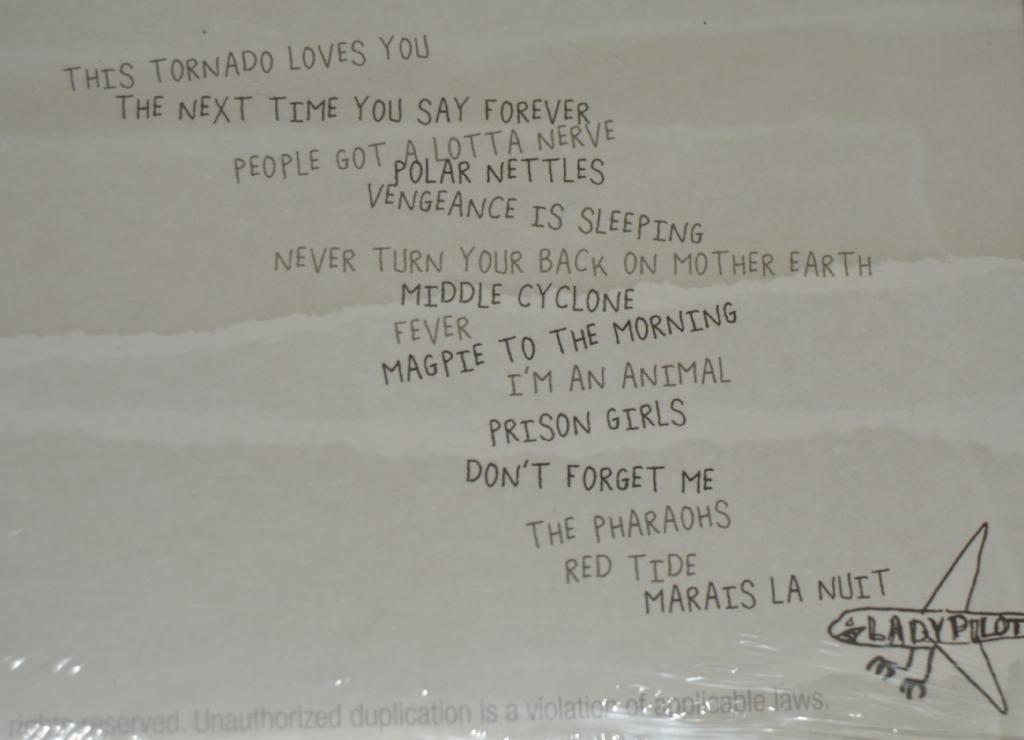 THIS TORNADO LOVES YOU
THE NEXT TIME YOU SAY FOREVER
PEOPLE GOT A LOTTA NERVE
POLAR NETTLES
VENGEANCE IS SLEEPING
NEVER TURN YOUR BACK ON MOTHER EARTH
MIDDLE CYCLONE
FEVER
MAGPIE TO THE MORNING
I'M AN ANIMAL
PRISON GIRLS
DON'T FORGET ME
THE PHARAOHS
RED TIDE
MARAIS LA NUIT
LADYPILOT
rights reserved. Unauthorized duplication is a violation of applicable laws.